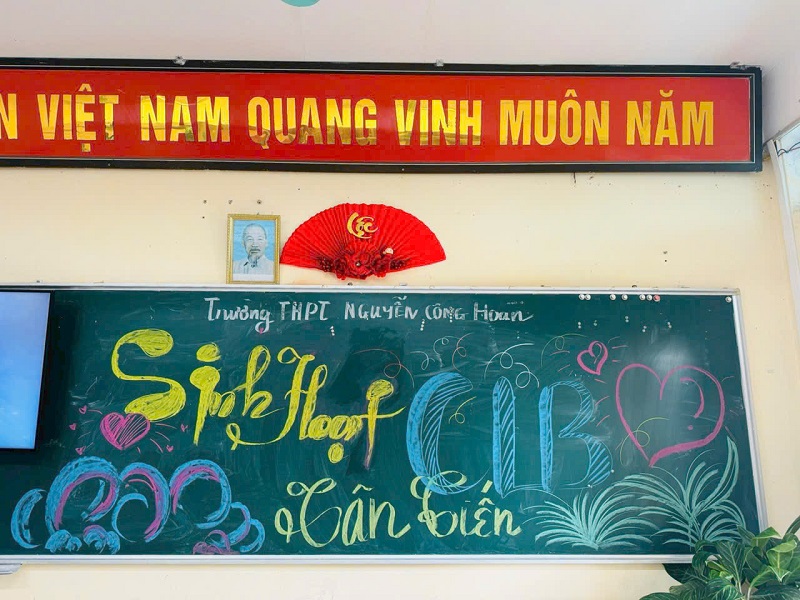 N VIỆT NAM QUANG VINH MUÔN NĂM
Lộc
Trường THPT NGUYỄN CÔNG Hoan
Sinh Hoạt CLB
Tân Tiến